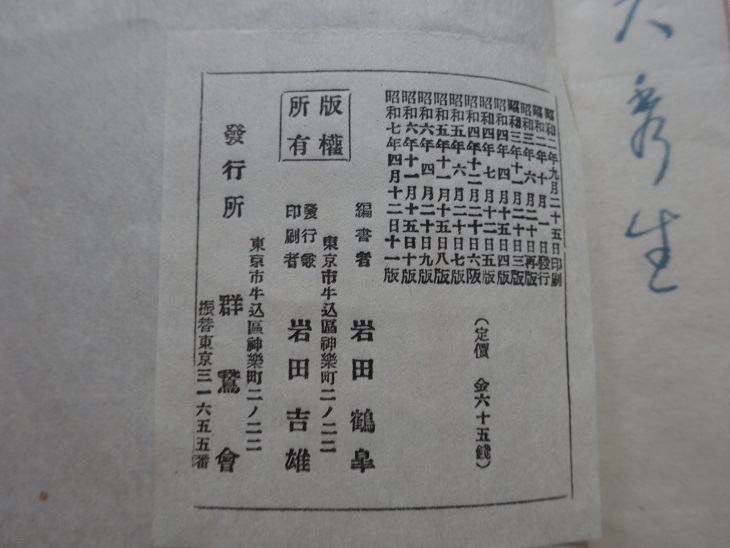 昭和二年九月二十五日印刷
昭和二年十月一日發行
昭和三年六月二十日再版
昭和三年十一月二十日三版
昭和四年四月十五日四版
昭和四年七月十二日五版
昭和四年十二月二十日六版
昭和五年六月二十日七版
昭和五年十一月十五日八版
昭和六年四月二十日九版
昭和六年十一月十五日十版
昭和七年四月十二日十一版
(定價 金六十五錢)
版權
所有
編書者 岩田鶴皐
東京市牛込區神樂町二ノ二二
發行兼
印刷者 岩田吉雄
東京市牛込區神樂町二ノ二二
發行所 群鷲會
振替東京三一六五五番
秀生